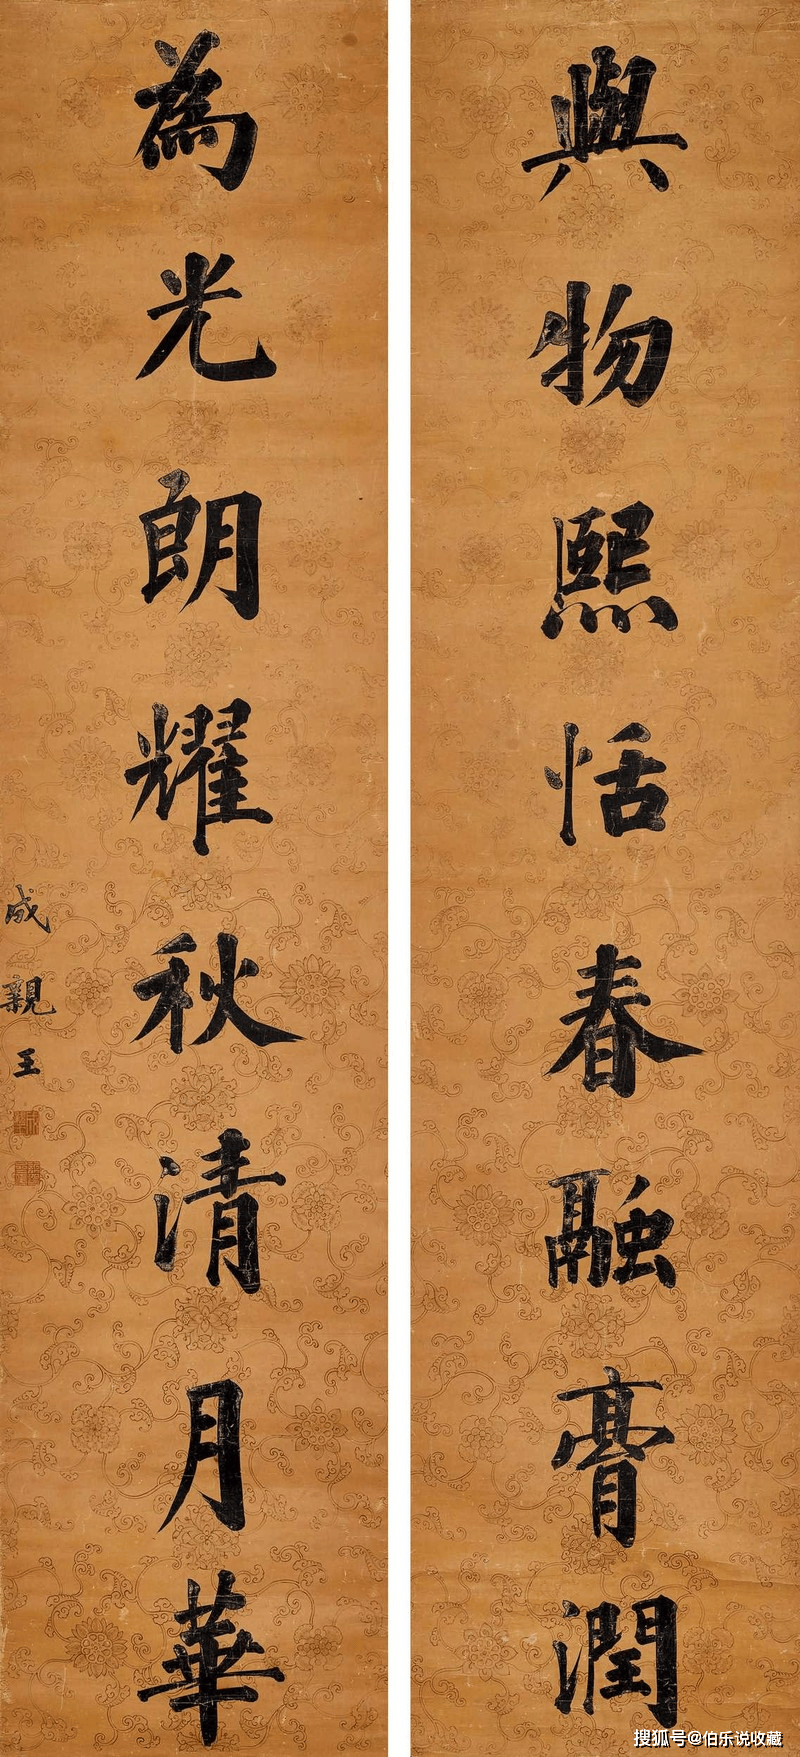 與物熙恬春融膏潤
為光朗耀秋清月華
成親王
搜狐号@伯乐说收藏